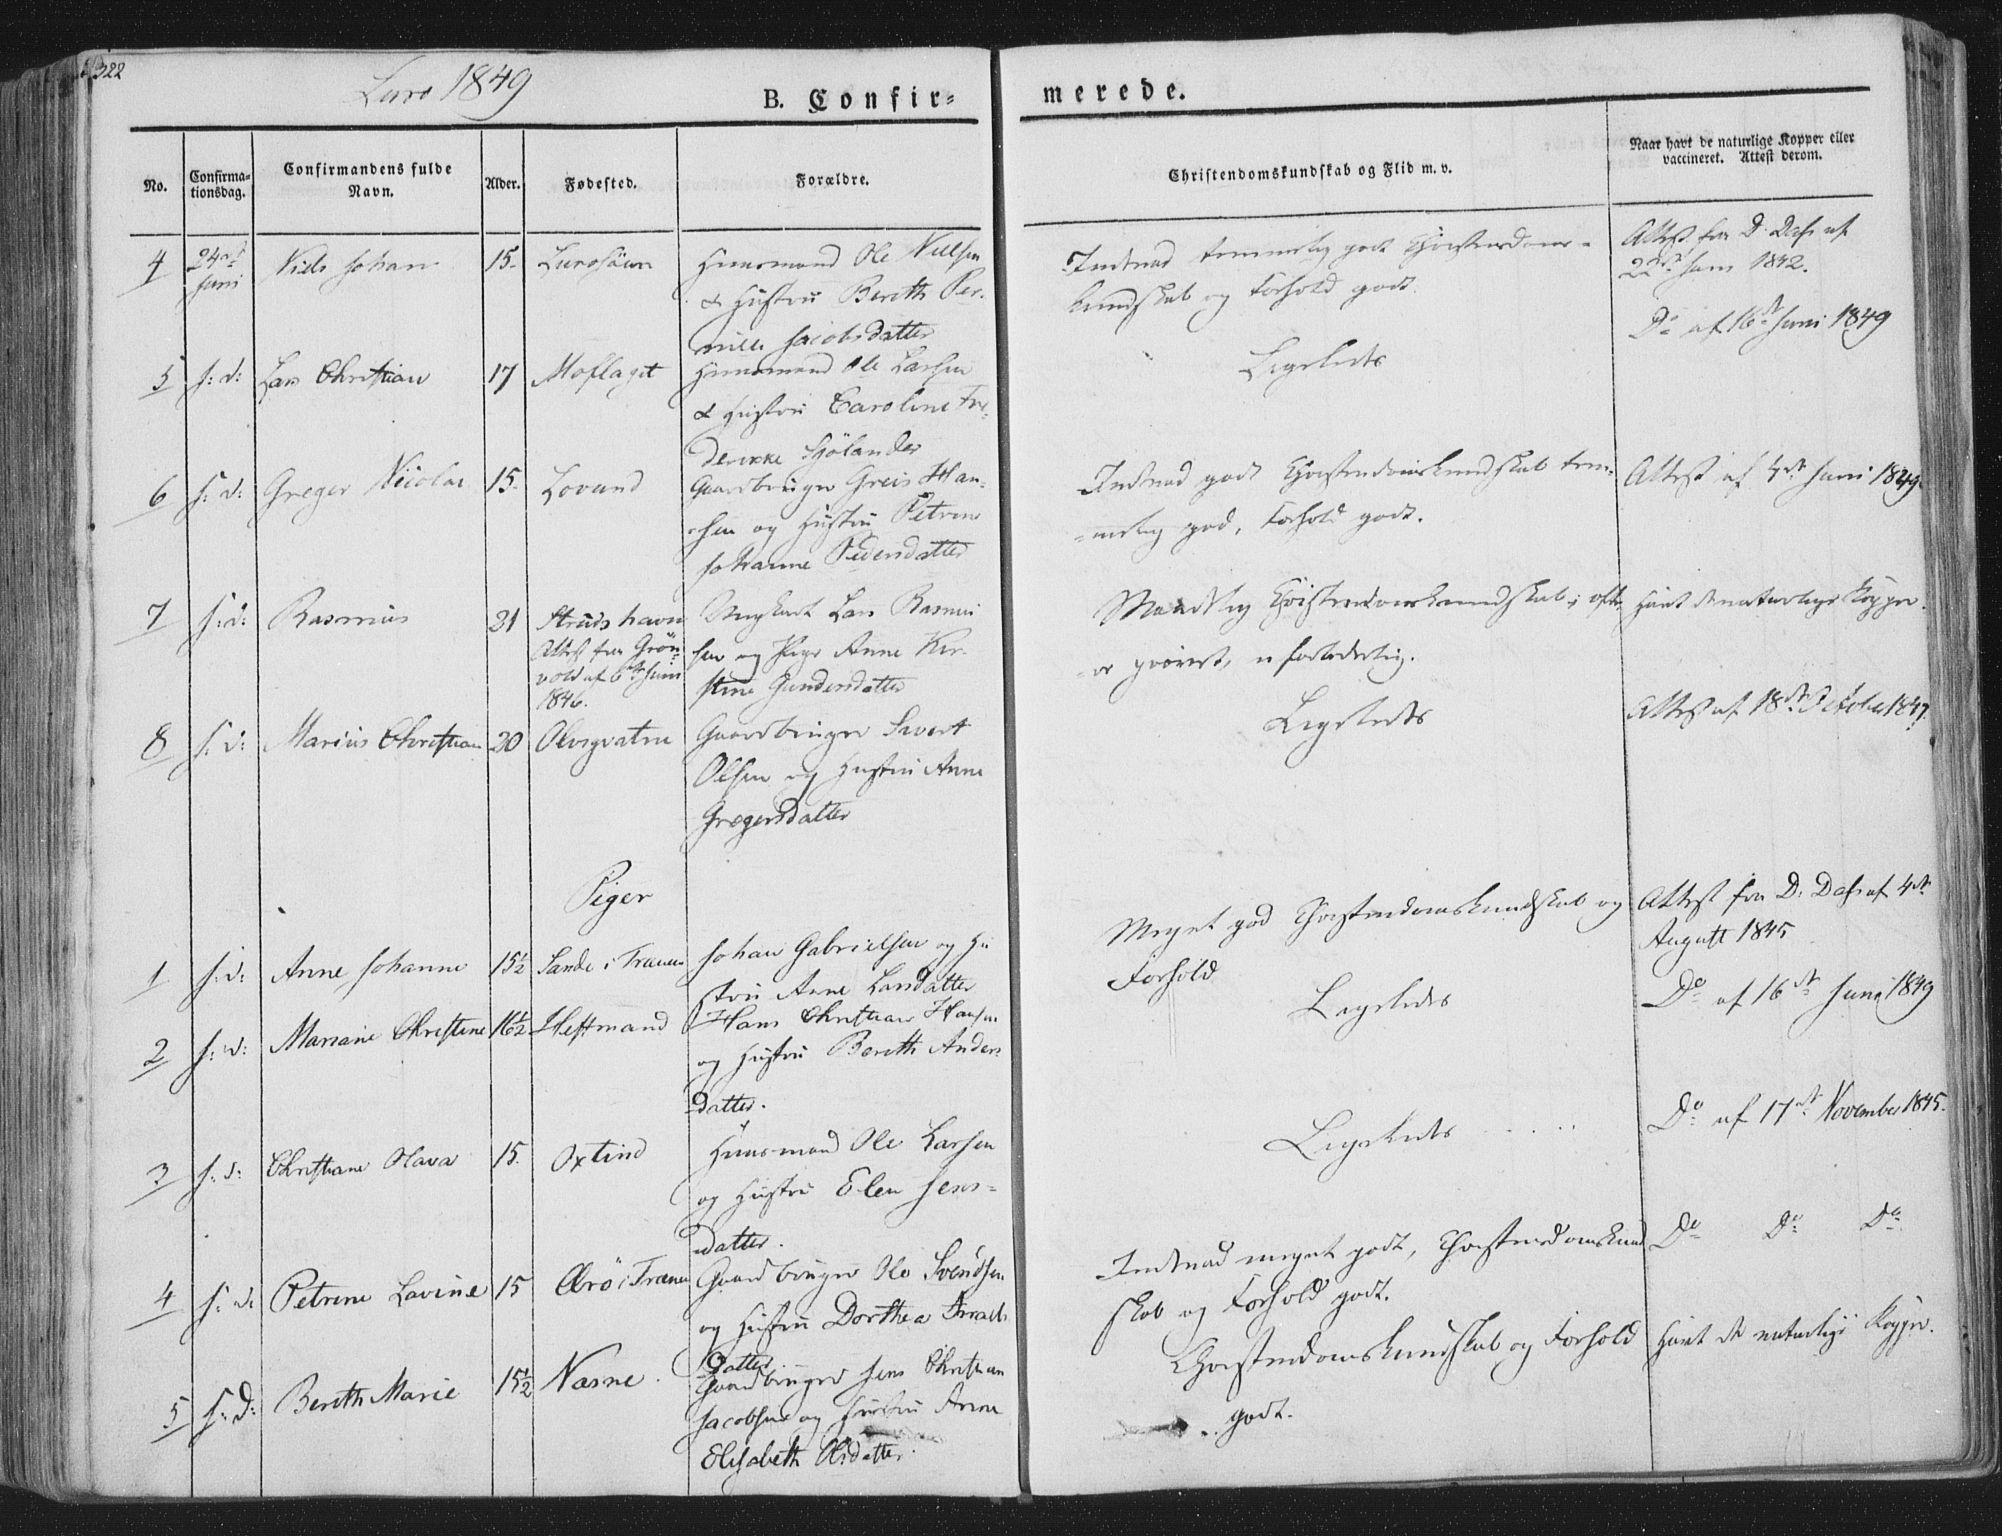 322
Lurø 1849
B. Confir-
merede.
No.
Confirma-
tionsdag.
Confirmandens fulde
Navn.
Alder.
Fødested.
Forældre.
Christendomskundskab og Flid m. v.
Naar havt de naturlige Kopper eller
vaccineret. Attest derom.
4
24de
Juni
Niels Johan
15
Huusmand Ole Nielsen
& Hustru Bereth Per-
nille Jacobsdatter
Indenad temmelig godt Christendoms-
kundskab og Forhold godt
Attest fra D. Dass af
22de Juni 1842.
5
s: d:
Lars Christian
17
Moflaget
Huusmand Ole Larsen
& Hustru Caroline Fre-
derikke Sjölander
Ligeledes
Do af 16de Juni 1849
6
s: d:
Greger Nicolai
15
Lovund
Gaardbruger Greis Han-
sen og Hustru Petrine
Johanne Pedersdatter
Indenad godt Christendomskundskab tem-
melig god, Forhold godt.
Attest af 4de Juni 1849
7
s: d:
Rasmus
21
Strudshavn
Attest fra Grön-
vold af 6te Juni
1846.
Ungkarl Lars Rasmus-
sen og Pige Anne Kir-
stine Gundersdatter
Maadelig Christendomskundskab;
Havt de naturlige Kopper.
8
s: d:
Marius Christian
20
Olvigvatne
Gaardbruger Sivert
Olsen og Hustru Anne
Gregersdatter
Ligeledes
Attest af 18de October 1847.
Piger
1
s: d:
Anne Johanne
15½
Sande i Trænen
Johan Gabrielsen og Hu-
stru Anne Larsdatter
Meget god Christendomskundskab og
Forhold
Attest fra D. Dass af 4de
August 1845
2
s: d:
Mariane Christine
16½
Hestmand
Hans Christian Hansen
og Hustru Bereth Anders-
datter.
Ligeledes
Do af 16de Juni 1849
3
s: d:
Christiane Olava
15
Oxtind
Huusmand Ole Larsen
og Hustru Elen Jens-
datter.
Ligeledes
Do af 17de November 1845.
4
s: d:
Petrine Lavine
15
Gaardbruger Ole Svendsen
og Hustru Dorthea
datter
Indenad meget godt, Christendomskund
skab og Forhold godt.
Do Do Do
5
s: d:
Bereth Marie
15½
Næsne
Gaardbruger Jens Christian
Jacobsen og Hustru Anne
Elisabeth Olsdatter.
Christendomskundskab og Forhold
godt.
Havt de naturlige Kopper.